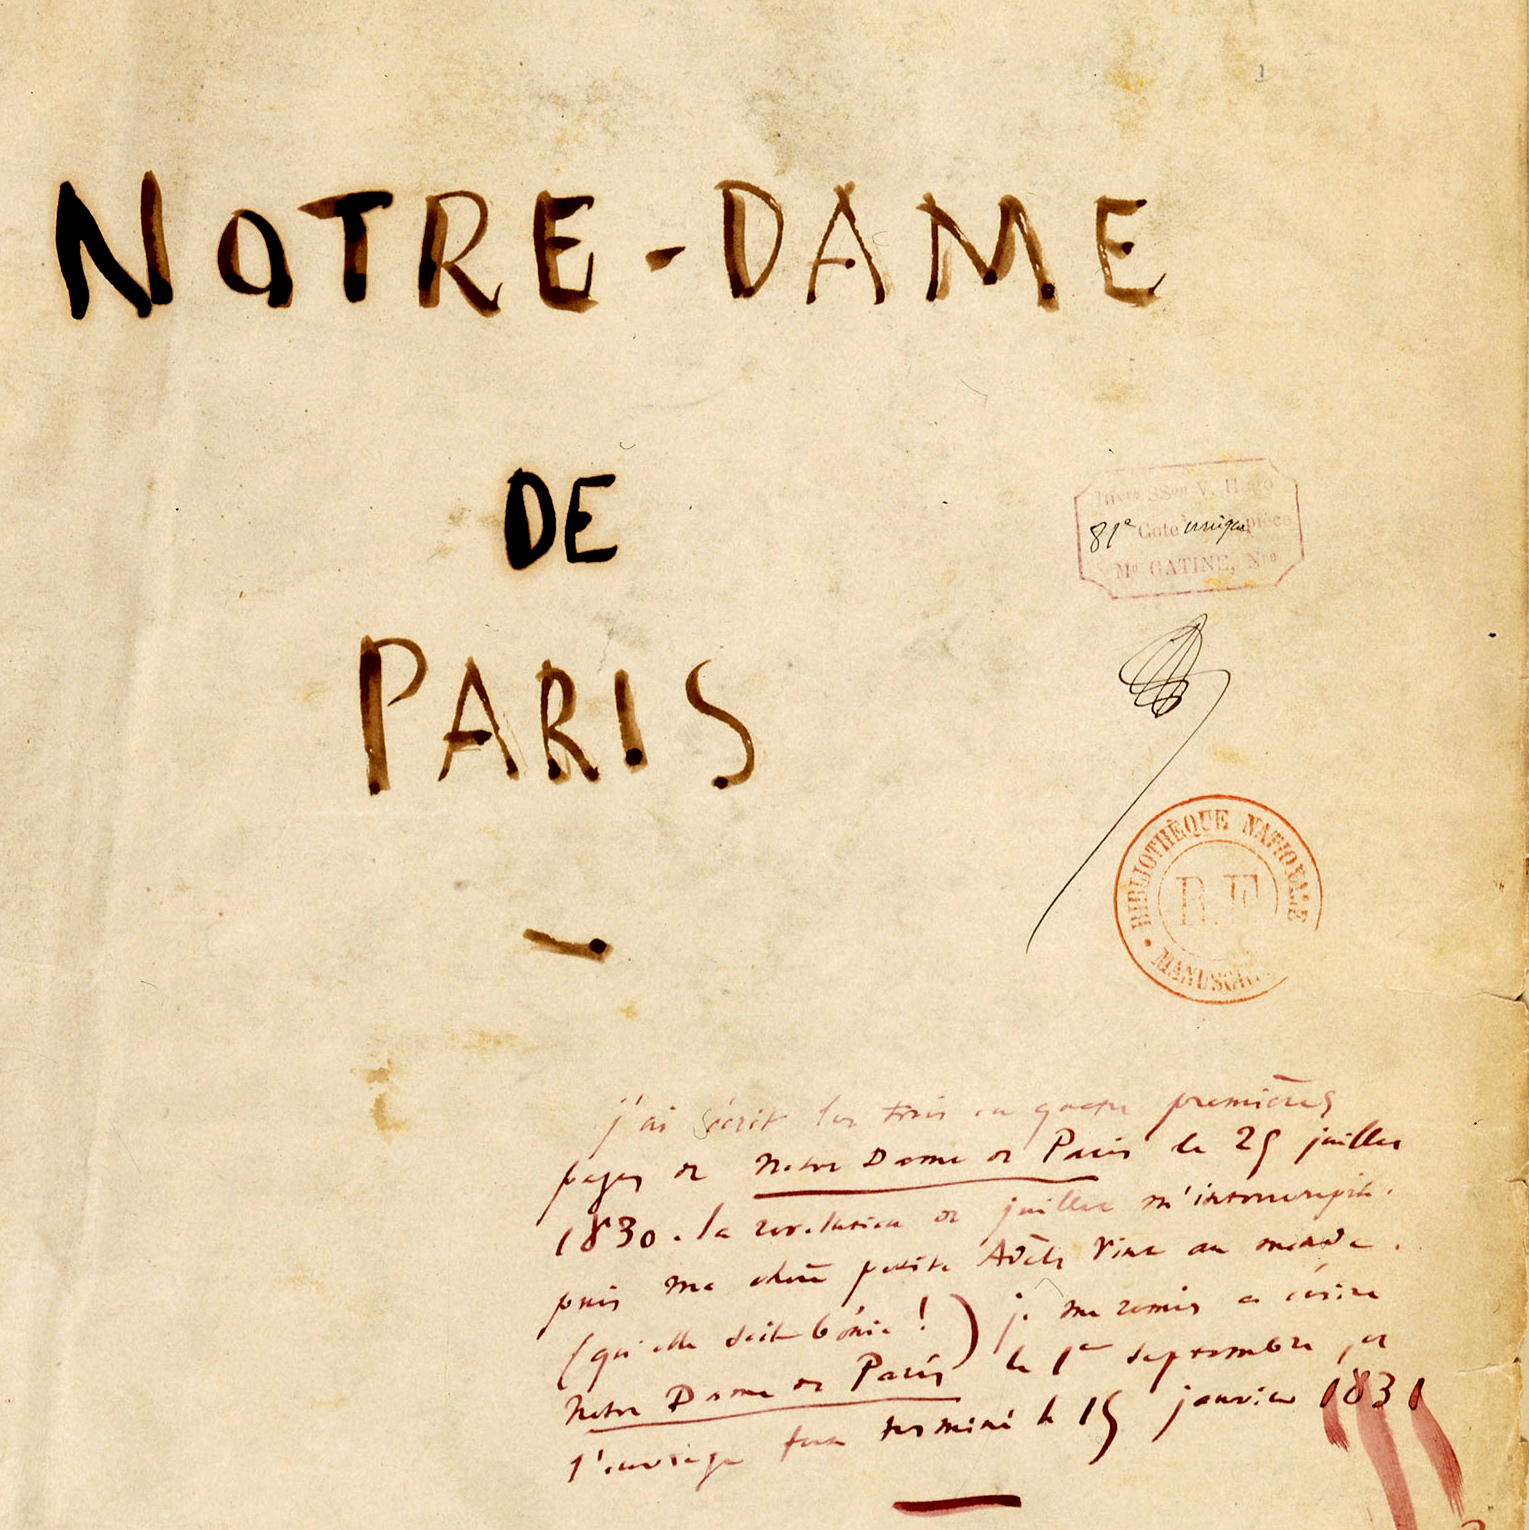 NOTRE-DAME
DE
PARIS
Invre SSon V. Hugo
81e Cote unique pièce
Me GATINE, Nre
BIBLIOTHÈQUE NATIONALE
R.F.
MANUSCRITS
j'ai écrit les trois ou quatre premières
pages de Notre Dame de Paris le 25 juillet
1830. la révolution de juillet m'interrompit.
puis ma chère petite Adèle vint au monde.
(qu'elle soit bénie!) je me remis à écrire
Notre Dame de Paris le 1er septembre, et
l'ouvrage fut terminé le 15 janvier 1831